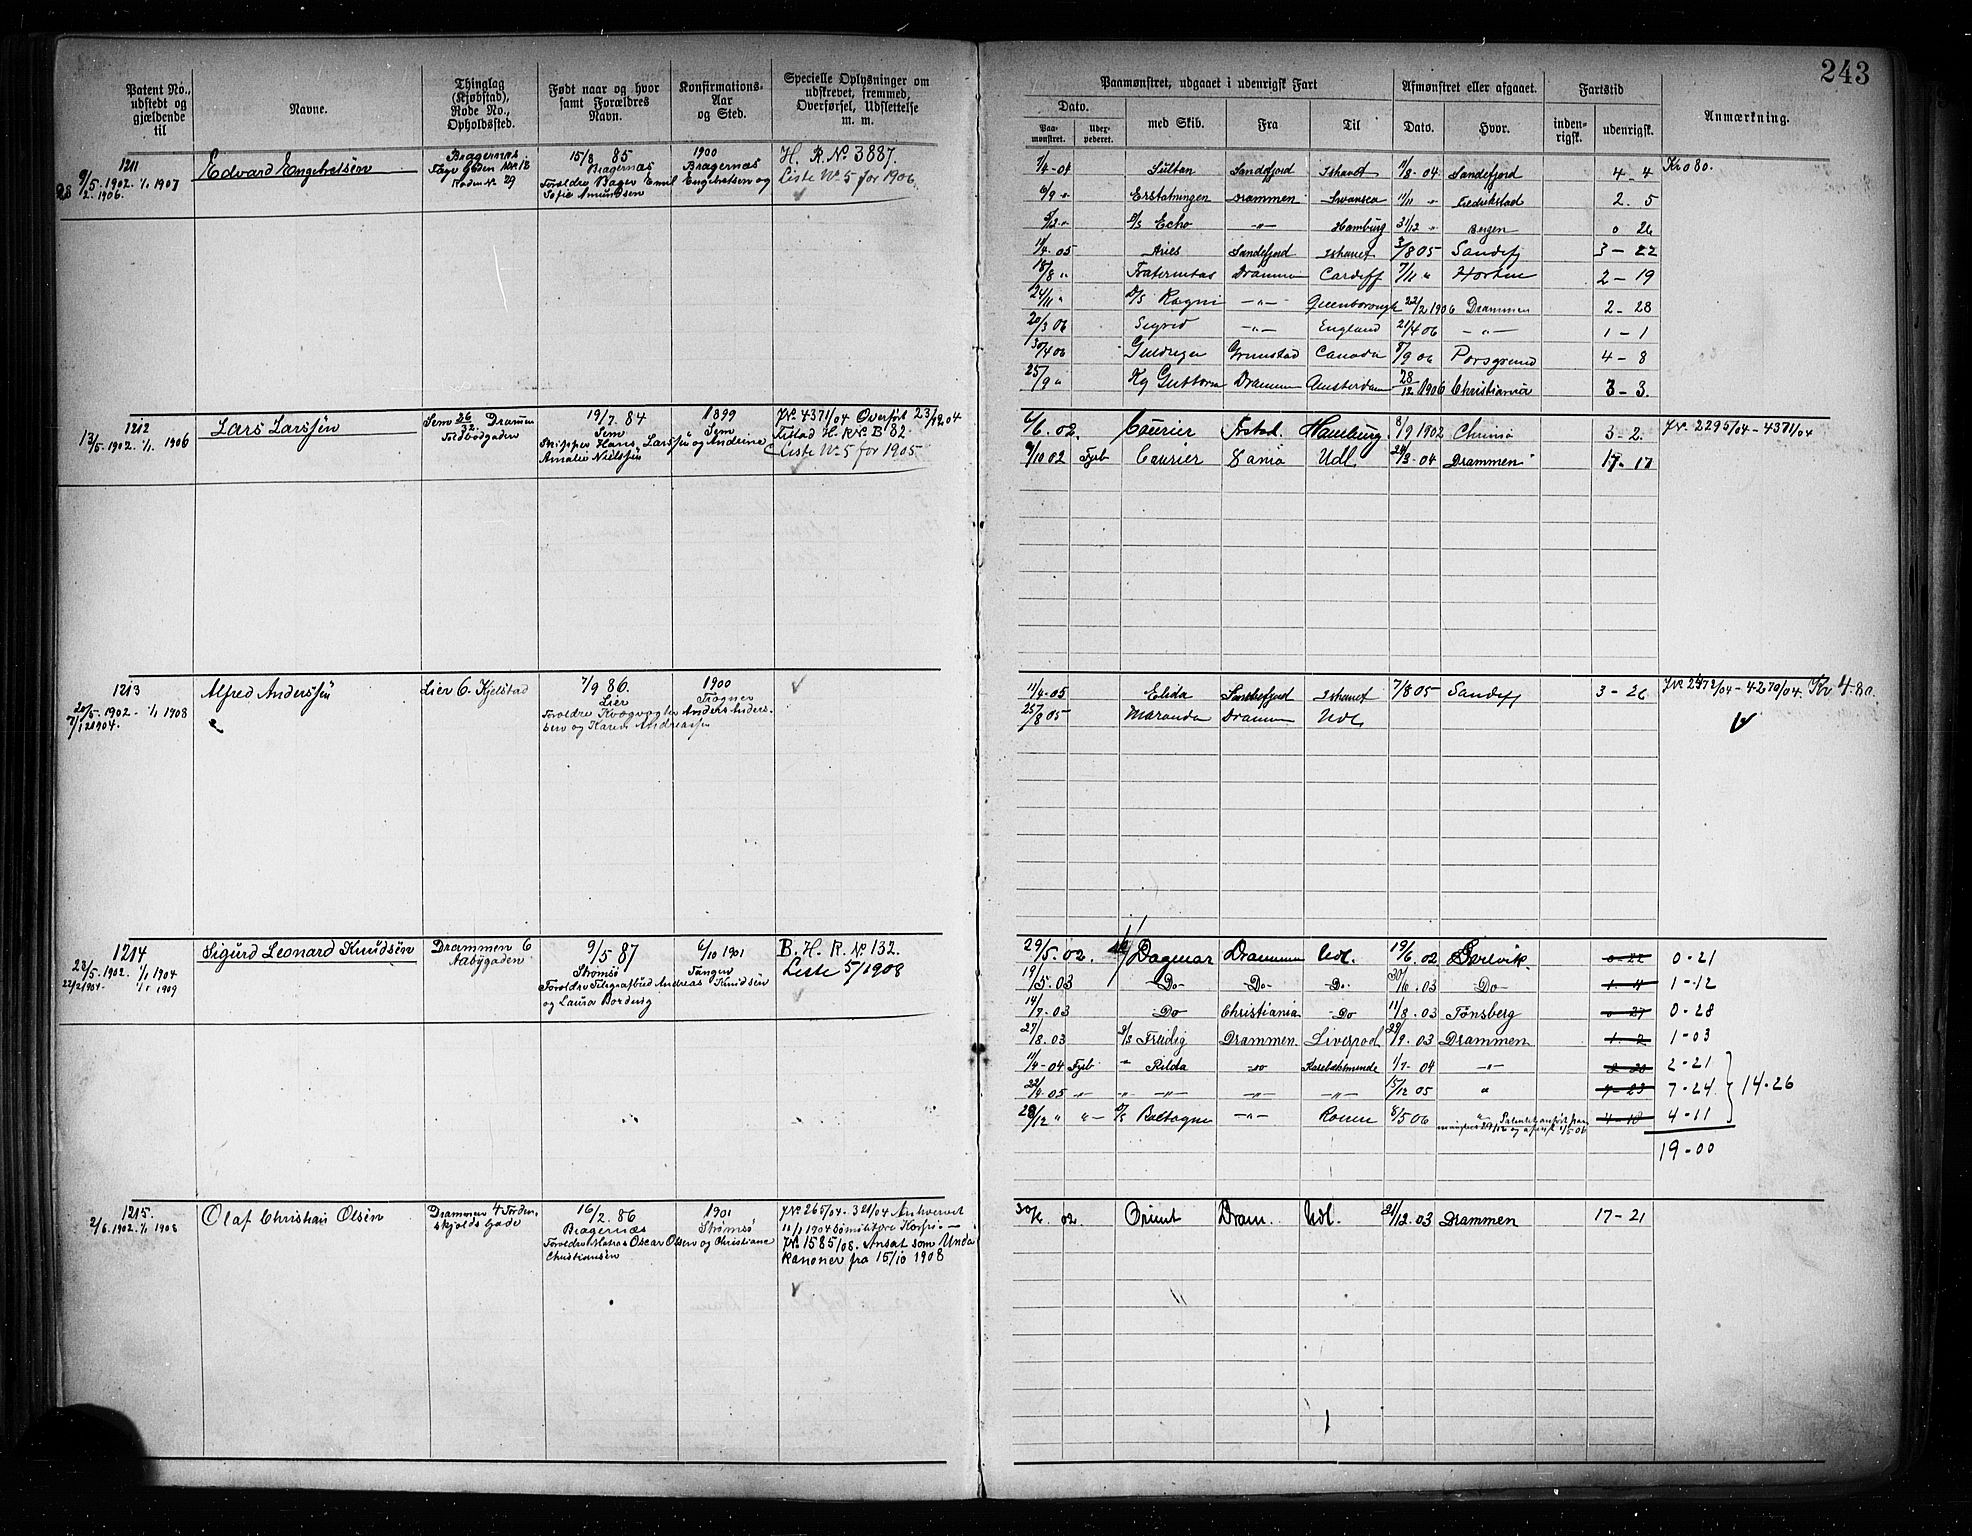 243
Patent No., udstedt og gjældende til
Navne.
Thinglag (Kjøbstad), Rode No., Opholdssted.
Født naar og hvor samt Forældres Navn.
Konfirmations- Aar og Sted.
Specielle Oplysninger om udskrevet, fremmed, Overførsel, Udslettelse m. m.
Paamønstret, udgaaet i udenrigsk Fart
Dato.
Paa- mønstret.
med Skib.
Fra
Til
Afmønstret eller afgaaet.
Dato.
Hvor.
Fartstid
inden- rigsk.
udenrigsk.
Anmærkning.
1211
9/5. 1902. 1/1 1907
Edvard Engebretsen
Bragernæs
15/8 85
Bragernæs
Foreldre Bager Emil Engebretsen og
Sofie Amundsen
1900
Bragernæs
H. R. No 3887.
Liste No 5 for 1906.
1/4-04 Sultan Sandefjord Ishavet 11/8-04 Sandefjord 4-4 Kr 0 80.
6/9 " Erstatningen Drammen Swansea 11/11 " Fredrikstad 2. 5
5/12 " D/S Echo -"- Hamburg 31/12 " Bergen 0 26
11/4-05 Aries Sandefjord Ishavet 3/8 05 Sandefj 3-22
18/8 " Fraternitas Drammen Cardiff 7/11 " Horten 2-19
24/11 " D/S Ragni -"- Queenborough 22/2 1906 Drammen 2-28
20/3 06 Sigrid -"- England 21/4 06 -"- 1-1
30/4 06 Grimstad Canada 8/9 06 Porsgrund 4-8
25/9 " Kg Guttorm Drammen Amsterdam 28/12 1906 Christiania 3-3.
1212
13/5. 1902. 1/1 1906
Lars Larssen
Sem 26/32 Drammen
19/7. 84
Sem
Skipper Hans Larssen og Andrine
Amalie Nielsen
1899
Sem
J.No 4371/04 Overført 23/12 04
F.stad H. R. No B 82
Liste No 5 for 1905.
6/6. 02. Courier Fr.stad. Hamburg 8/9 1902 3-2. J.No 2295/04-4371/04
9/10 02 Fyrb Courier Udl 29/3-04 Drammen 17-17
1213
20/5. 1902. 1/1 1908
Alfred Anderssen
Lier 6. Kjelstad
7/9 86.
Lier
Foreldre Anders Anders-
sen og Karen Andreassen
1900
Frogner
11/4-05 Elida Sandefjord Ishavet 7/8 05 Sandefj 3-26
25/8 05 Maranda Drammen Udl
1214
28/5. 1902. 1/1 1904
22/2 1904. 1/1 1909
Sigurd Leonard Knudsen
Drammen 6
Aabygaden
9/5 87
Strømsø
Foreldre Telegrafbud Andreas Knudsen
og Laura Bordevig
6/10 1901
Tangen
B. H. R. No 132.
Liste 5/1908
29/5. 02. Dagmar Drammen Udl. 19/6. 02 Svelvik 0-22 0-21
19/5. 03 Do Do Do 30/6. 03 Do 1-4 1-12
14/7. 03 Do Christiania Do 11/8. 03 Tønsberg 0-27 0-28
27/8. 03 D/S Freidig Drammen Liverpool 29/9. 03 Drammen 1-2 1-03
11/4-04 Fyrb " Rilda do 1/7-04 -"- 2-20 2-21
22/4-05 " " -"- -"- -"- 15/12 05 " 7-23 7-24
14-26
28/12 " "- D/S -"- Rouen 8/5 06 " 4-10 4-11
19-00
1215.
2/6. 1902. 1/1 1908
Olaf Christian Olsen
Drammen 4 Torden-
skjolds Gade
16/2. 86
Bragernæs
Foreldre Matros Oscar Olsen og Christiane
Christiansen
1901
Strømsø
J.No 265/04-321/04 Anhvervet
11/1 1904 Sømilitære Korps.-
J.No 1585/08. Ansat som Under
kanoner fra 15/10 1908
30/6. 02 Orient Dram. Udl. 21/12. 03 Drammen 17-21